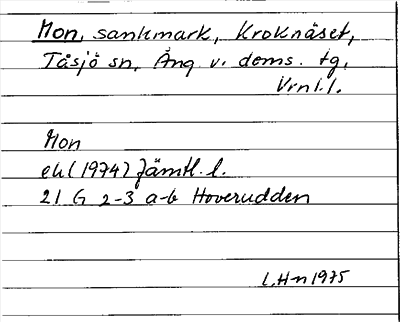 Mon, sankmark, Kroknäset,
Tåsjö sn, Ång v. doms. tg,
Vrnl.l.
Mon
ek (1974) Jämtl. l.
21 G 2-3 a-b Hoverudden
L.H-n 1975